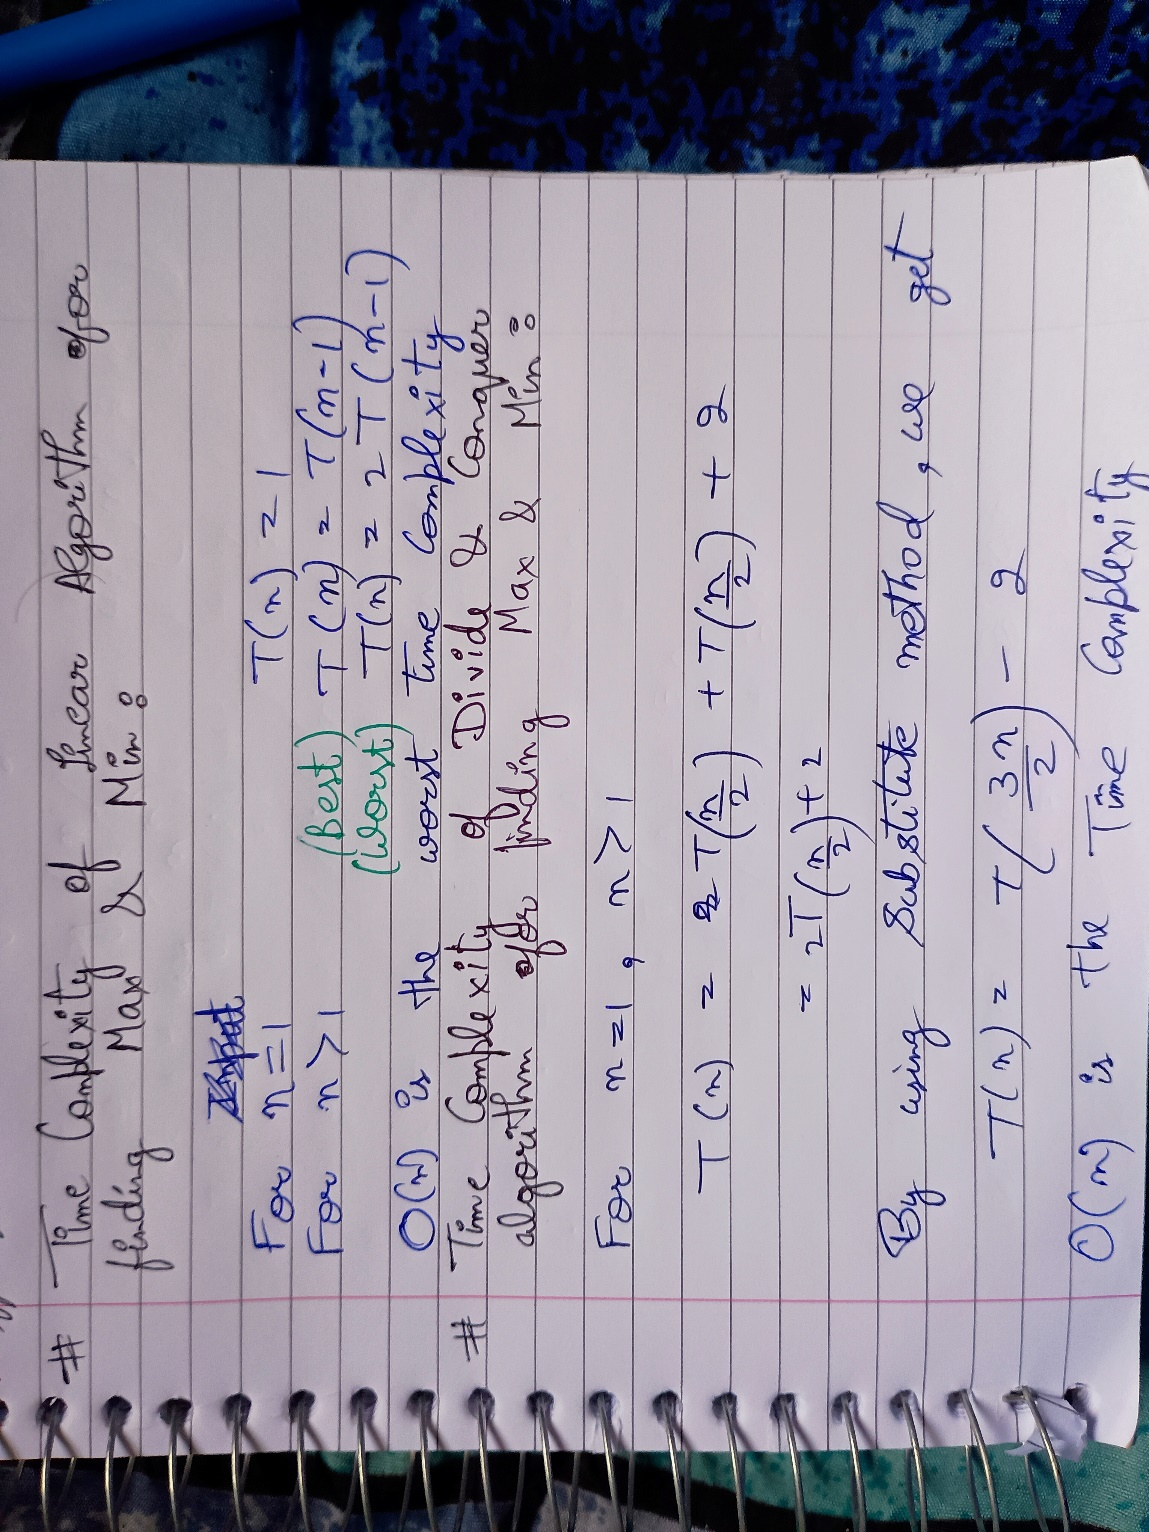 # Time Complexity of Linear Algorithm for
finding Max & Min:
For n=1 T(n) = 1
For n>1 (Best) T(n) = T(n-1)
(Worst) T(n) = 2T(n-1)
O(n) is the worst time complexity
# Time Complexity of Divide & Conquer
algorithm for finding Max & Min:
For n=1, n>1
T(n) = 2T(n/2) + T(n/2) + 2
= 2T(n/2) + 2
By using Substitute method, we get
T(n) = T(3n/2) - 2
O(n) is the Time Complexity